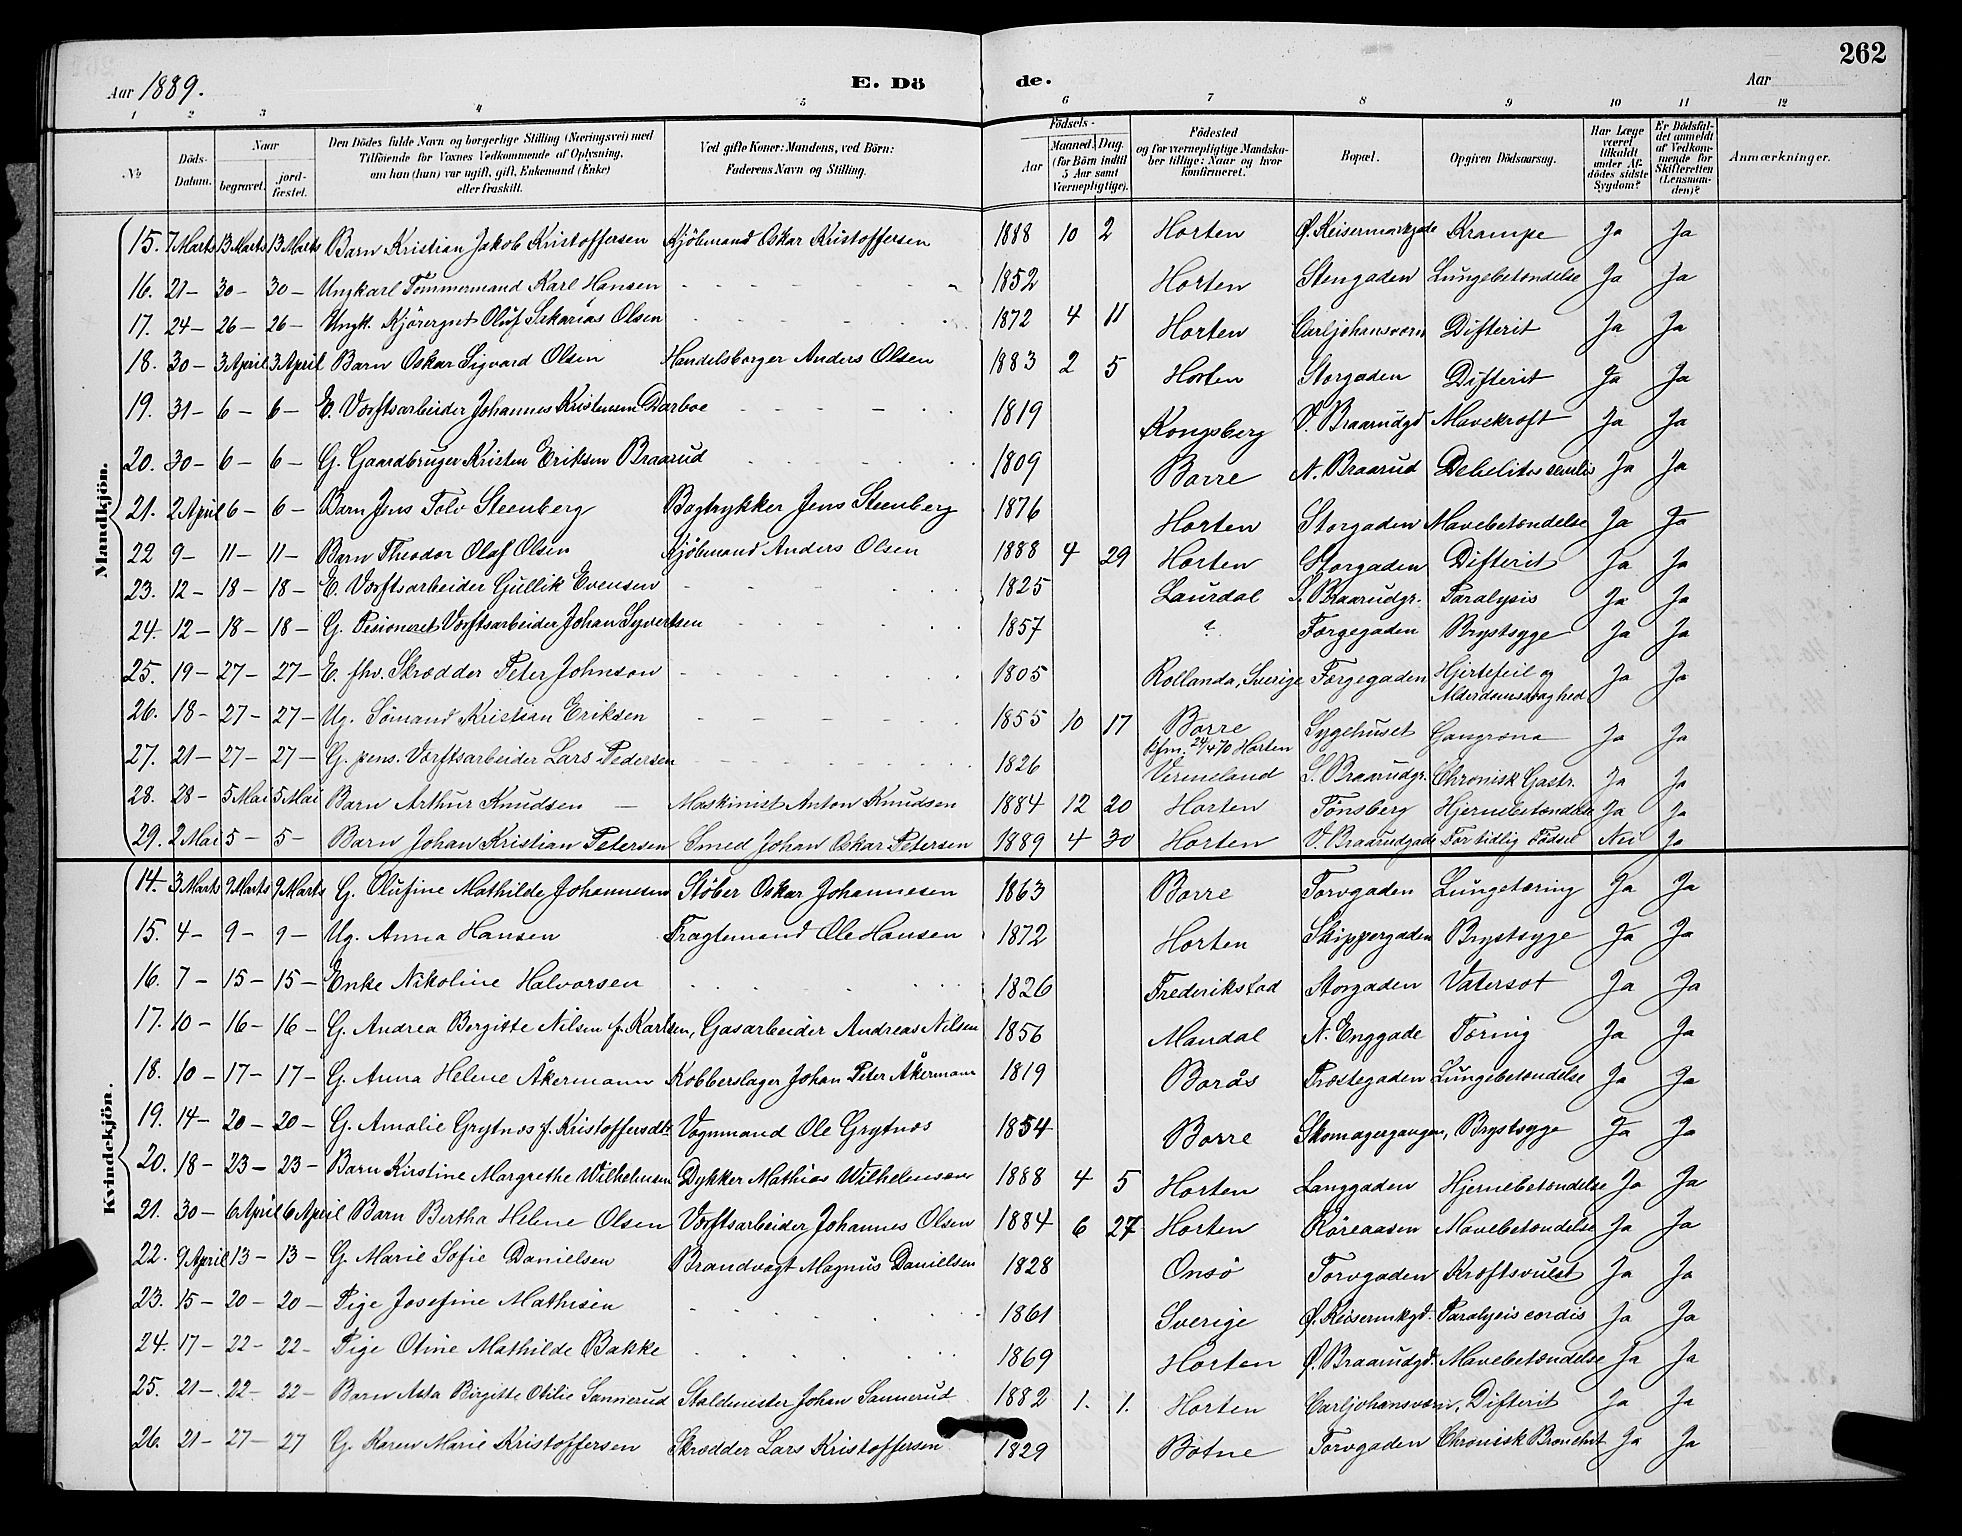 262
Aar 1889. E. Dö de. Aar
1 2 3 4 5 6 7 8 9 10 11 12
No
Döds-Datum.
Naar
begravet.
jord-fæstet.
Den Dödes fulde Navn og borgerlige Stilling (Næringsvei) med
Tilföiende for Voxnes Vedkommende af Oplysning,
om han (hun) var ugift, gift, Enkemand (Enke)
eller fraskilt.
Ved gifte Koner: Mandens, ved Börn:
Faderens Navn og Stilling.
Födsels-
Aar
Maaned. Dag.
(for Börn indtil
5 Aar samt
Værnepligtige).
Födested
og for værnepligtige Mandska-
ber tillige: Naar og hvor
konfirmeret.
Bopæl.
Opgiven Dödsaarsag.
Har Læge
været
tilkaldt
under Af-
dödes sidste
Sygdom?
Er Dödsfal-
det anmeldt
af Vedkom-
mende for
Skifteretten
(Lensman-
den)?
Anmærkninger.
Mandkjön.
15. 7 Marts 13 Marts 13 Marts Barn Kristian Jakob Kristoffersen Kjöbmand Oskar Kristoffersen 1888 10 2 Horten Ø. Keisermarkgade Krampe Ja Ja
16. 21 – 30 – 30 – Ungkarl Tömmermand Karl Hansen 1852 Horten Stengaden Lungebetændelse Ja Ja
17. 24 – 26 – 26 – Ungk. Kjöregut Oluf Sakarias Olsen 1872 4 11 Horten Carljohansværn Difterit Ja Ja
18. 30 – 3 April 3 April Barn Oskar Sigvard Olsen Handelsborger Anders Olsen 1883 2 5 Horten Storgaden Difterit Ja Ja
19. 31 – 6 – 6 – E. Værftsarbeider Johannes Kristensen Darboe 1819 Kongsberg V. Braarudgd Mavekræft Ja Ja
20. 30 – 6 – 6 – G. Gaardbruger Kristen Eriksen Braarud 1809 Borre N. Braarud Debelitas senilis Ja Ja
21. 2 April 6 – 6 – Barn Jens Tolv Steenberg Bogtrykker Jens Steenberg 1876 Horten Storgaden Mavebetændelse Ja Ja
22 9 – 11 – 11 – Barn Theodor Olaf Olsen Kjöbmand Anders Olsen 1888 4 29 Horten Storgaden Difterit Ja Ja
23. 12 – 18 – 18 – E. Værftsarbeider Gullik Evensen 1825 Laurdal S. Braarudgr. Paralysis Ja Ja
24. 12 – 18 – 18 – G. Pesioneret Værftsarbeider Johan Syvertsen 1857 ? Færgegaden Brystsyge Ja Ja
25. 19 – 27 – 27 – E. fhv. Skrædder Peter Johnson 1805 Rollanda, Sverige Færgegaden Hjertefeil og Alderdomssvaghed Ja Ja
26. 18 – 27 – 27 – Ug. Sömand Kristian Eriksen 1855 10 17 Borre Kfm. 24/4 70 Horten Sygehuset Gangræna Ja Ja
27. 21 – 27 – 27 – G. pens. Værftsarbeider Lars Pedersen 1826 Vermeland S. Braarudgr. Chronisk Gastr. Ja Ja
28. 28 – 5 Mai 5 Mai Barn Arthur Knudsen – Maskinist Anton Knudsen 1884 12 20 Horten Tönsberg Hjernebetændelse Ja Ja
29. 2 Mai 5 – 5 – Barn Johan Kristian Petersen Smed Johan Oskar Petersen 1889 4 30 Horten V. Braarudgade For tidlig Födsel Nei Ja
Kvindekjön.
14. 3 Marts 9 Marts 9 Marts G. Olufine Mathilde Johannesen Stöber Oskar Johannesen 1863 Borre Torvgaden Lungetæring Ja Ja
15. 4 – 9 – 9 – Ug. Anna Hansen Fragtemand Ole Hansen 1872 Horten Skippergaden Brystsyge Ja Ja
16. 7 – 15 – 15 – Enke Nikoline Halvorsen 1826 Frederikstad Storgaden Vatersot Ja Ja
17. 10 – 16 – 16 – G. Andrea Bergitte Nilsen f. Karlsen, Gasarbeider Andreas Nilsen 1856 Mandal N. Enggade Tæring Ja Ja
18. 10 – 17 – 17 – G. Anna Helene Åkermann Kobberslager Johan Peter Åkermann 1819 Borås Præstegaden Lungebetændelse Ja Ja
19. 14 – 20 – 20 – G. Amalie Grytnes f. Kristoffersdt. Vognmand Ole Grytnæs 1854 Borre Skomagergangen, Brystsyge Ja Ja
20. 18 – 23 – 23 – Barn Kirstine Margrethe Wilhelmsen Dykker Mathias Wilhelmsen 1888 4 5 Horten Langgaden Hjernebetændelse Ja Ja
21. 30 – 6 April 6 April Barn Bertha Helene Olsen Værftsarbeider Johannes Olsen 1884 6 27 Horten Röreaasen Mavebetændelse Ja Ja
22. 9 April 13 – 13 – G. Marie Sofie Danielsen Brandvagt Magnus Daniellsen 1828 Onsö Torvgaden Kræftsvulst Ja Ja
23. 15 – 20 – 20 – Pige Josefine Mathisen 1861 Sverige Ø. Keisermkgd. Paralysis cordis Ja Ja
24. 17 – 22 – 22 – Pige Otine Mathilde Bakke 1869 Horten Ø. Braarudgd. Mavebetændelse Ja Ja
25. 21 – 22 – 22 – Barn Asta Birgitte Otilie Sannerud Staldmester Johan Sannerud 1882 1. 1. Horten Carljohansværn, Difterit Ja Ja
26. 21 – 27 – 27 G. Karen Marie Kristoffersen Skrædder Lars Kristoffersen 1829 Botne Torvgaden Chronisk Bronchit Ja Ja